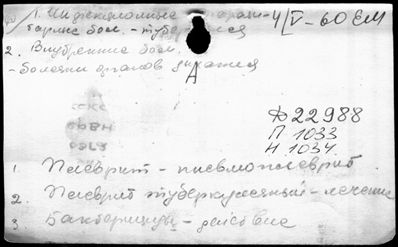 1. Инфекционные и парази- 4/V-60 ЕМ
тарные бол. - туберкулез
2. Внутренние бол.
- болезни органов дыхания
Ф 22988
П 1033
Н 1034
1. Плеврит - пневмоплеврит
2. Плеврит туберкулезный - лечение
3. Бактерициды - действие